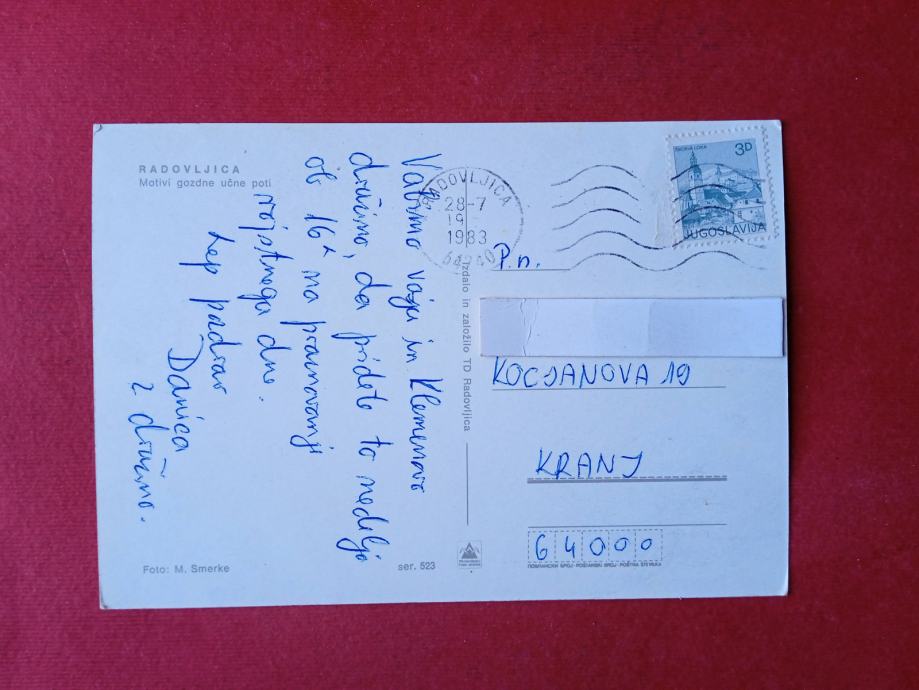 RADOVLJICA
Motivi gozdne učne poti
Vabimo vaju in Klemenovo
družino, da pridete to nedeljo
ob 16ʰ na praznovanje
rojstnega dne.
Lep pozdrav
Danica
z družino.
Foto: M. Smerke
ser. 523
Izdalo in založilo TD Radovljica
RADOVLJICA
28-7
19
1983
64240
ŠKOFJA LOKA
3D
JUGOSLAVIJA
P.n.
KOCJANOVA 19
KRANJ
64000
ПОШТАНСКИ БРОЈ · POŠTANSKI BROJ · POŠTNA ŠTEVILKA